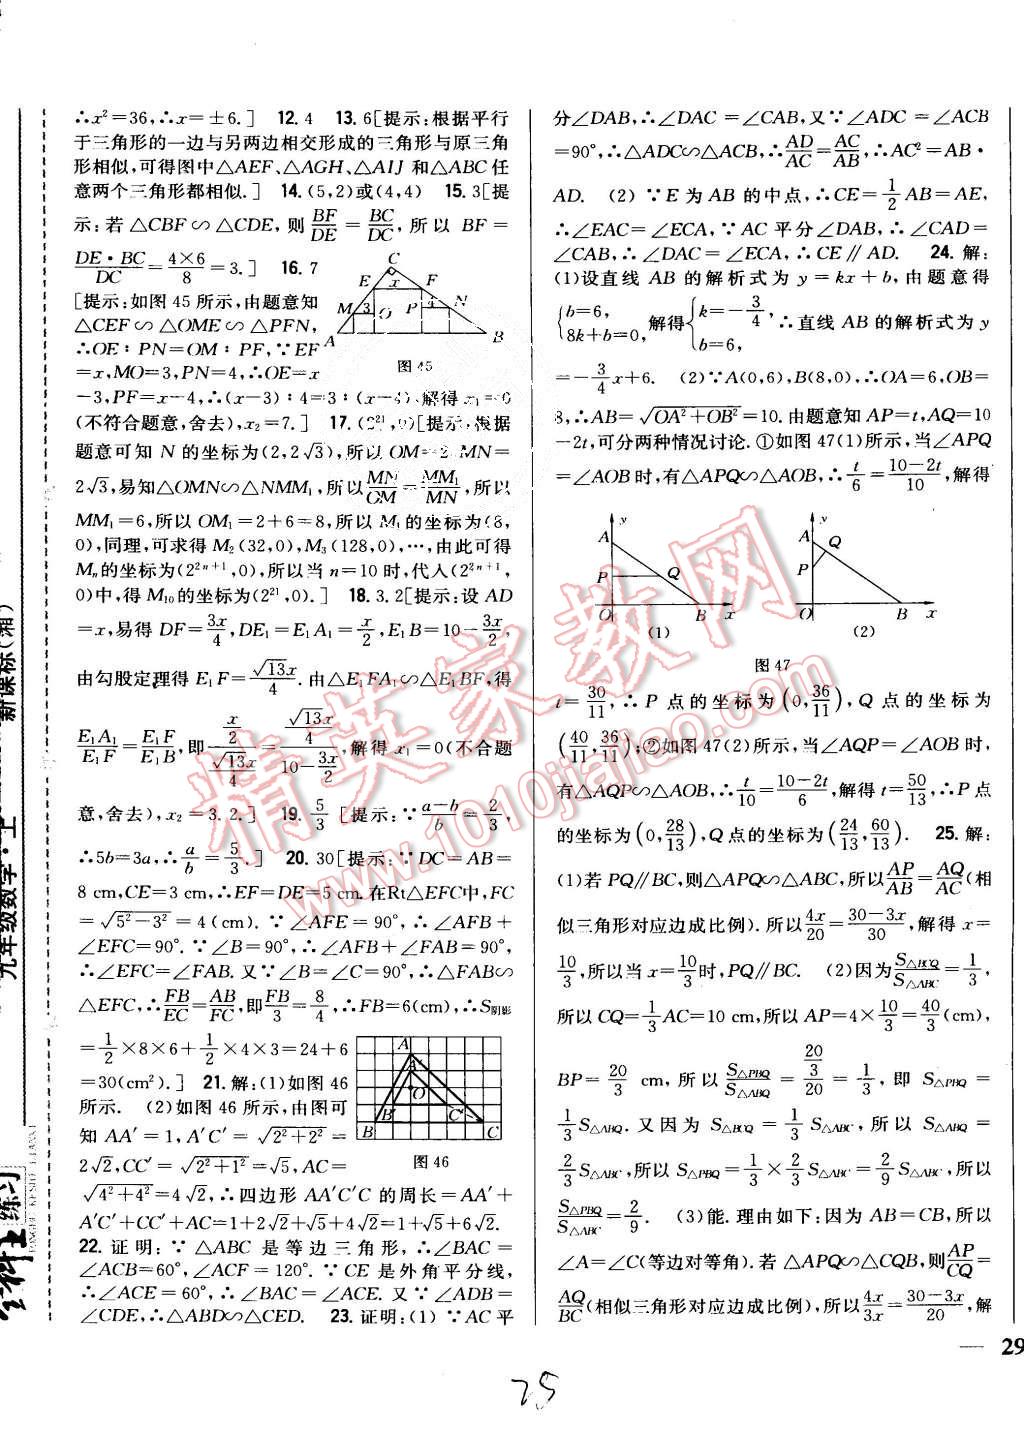 ∴x²=36,∴x=±6.] 12.4 13.6[提示:根据平行
于三角形的一边与另两边相交形成的三角形与原三角
形相似,可得图中△AEF、△AGH、△AIJ和△ABC任
意两个三角形都相似.] 14.(5,2)或(4,4) 15.3[提
示:若△CBF∽△CDE,则BF/DE=BC/DC,所以BF=
DE·BC/DC=4×6/8=3.] 16.7
[提示:如图45所示,由题意知
△CEF∽△OME∽△PFN,
∴OE∶PN=OM∶PF,∵EF
=x,MO=3,PN=4,∴OE=x
C
E x F
M 3 O P 4 N
A B
图45
-3,PF=x-4,∴(x-3)∶4=3∶(x-4),解得x₁=0
(不符合题意,舍去),x₂=7.] 17.(2²¹,0)[提示:根据
题意可知N的坐标为(2,2√3),所以OM=2,MN=
2√3,易知△OMN∽△NMM₁,所以MN/OM=MM₁/MN,所以
MM₁=6,所以OM₁=2+6=8,所以M₁的坐标为(8,
0),同理,可求得M₂(32,0),M₃(128,0),…,由此可得
Mₙ的坐标为(2²ⁿ⁺¹,0),所以当n=10时,代入(2²ⁿ⁺¹,
0)中,得M₁₀的坐标为(2²¹,0).] 18.3.2[提示:设AD
=x,易得DF=3x/4,DE₁=E₁A₁=x/2,E₁B=10-3x/2,
由勾股定理得E₁F=√13x/4.由△E₁FA₁∽△E₁BF,得
E₁A₁/E₁F=E₁F/E₁B,即(x/2)/(√13x/4)=(√13x/4)/(10-3x/2),解得x₁=0(不合题
意,舍去),x₂=3.2.] 19.5/3[提示:∵(a-b)/b=2/3,
∴5b=3a,∴a/b=5/3.] 20.30[提示:∵DC=AB=
8 cm,CE=3 cm,∴EF=DE=5 cm.在Rt△EFC中,FC
=√(5²-3²)=4(cm).∵∠AFE=90°,∴∠AFB+
∠EFC=90°.∵∠B=90°,∴∠AFB+∠FAB=90°,
∴∠EFC=∠FAB.又∵∠B=∠C=90°,∴△FAB∽
△EFC,∴FB/EC=AB/FC,即FB/3=8/4,∴FB=6(cm),∴S阴影
=1/2×8×6+1/2×4×3=24+6
=30(cm²).] 21.解:(1)如图46
所示. (2)如图46所示,由图可
知AA′=1,A′C′=√(2²+2²)=
2√2,CC′=√(2²+1²)=√5,AC=
A
A′
O
B′ C′
B C
图46
√(4²+4²)=4√2,∴四边形AA′C′C的周长=AA′+
A′C′+CC′+AC=1+2√2+√5+4√2=1+√5+6√2.
22.证明:∵△ABC是等边三角形,∴∠BAC=
∠ACB=60°,∠ACF=120°.∵CE是外角平分线,
∴∠ACE=60°,∴∠BAC=∠ACE.又∵∠ADB=
∠CDE,∴△ABD∽△CED. 23.证明:(1)∵AC平
分∠DAB,∴∠DAC=∠CAB,又∵∠ADC=∠ACB
=90°,∴△ADC∽△ACB,∴AD/AC=AC/AB,∴AC²=AB·
AD. (2)∵E为AB的中点,∴CE=1/2AB=AE,
∴∠EAC=∠ECA,∵AC平分∠DAB,∴∠CAD=
∠CAB,∴∠DAC=∠ECA,∴CE∥AD. 24.解:
(1)设直线AB的解析式为y=kx+b,由题意得
{b=6, 8k+b=0,解得{k=-3/4, b=6,∴直线AB的解析式为y
=-3/4x+6. (2)∵A(0,6),B(8,0),∴OA=6,OB=
8,∴AB=√(OA²+OB²)=10.由题意知AP=t,AQ=10
-2t,可分两种情况讨论.①如图47(1)所示,当∠APQ
=∠AOB时,有△APQ∽△AOB,∴t/6=(10-2t)/10,解得
y
A
P Q
O B x
(1)
y
A Q
P
O B x
(2)
图47
t=30/11,∴P点的坐标为(0,36/11),Q点的坐标为
(40/11,36/11);②如图47(2)所示,当∠AQP=∠AOB时,
有△AQP∽△AOB,∴t/10=(10-2t)/6,解得t=50/13,∴P点
的坐标为(0,28/13),Q点的坐标为(24/13,60/13). 25.解:
(1)若PQ∥BC,则△APQ∽△ABC,所以AP/AB=AQ/AC(相
似三角形对应边成比例).所以4x/20=(30-3x)/30,解得x=
10/3,所以当x=10/3时,PQ∥BC. (2)因为S△BCQ/S△ABC=1/3,
所以CQ=1/3AC=10 cm,所以AP=4×10/3=40/3(cm),
BP=20/3 cm,所以S△PBQ/S△ABQ=(20/3)/20=1/3,即S△PBQ=
1/3S△ABQ.又因为S△BCQ=1/3S△ABC,所以S△ABQ=
2/3S△ABC,所以S△PBQ=1/3×2/3S△ABC=2/9S△ABC,所以
S△PBQ/S△ABC=2/9. (3)能.理由如下:因为AB=CB,所以
∠A=∠C(等边对等角).若△APQ∽△CQB,则AP/CQ=
AQ/BC(相似三角形对应边成比例),所以4x/3x=(30-3x)/20,解
— 29
25
九年级数学·上
新课标(湘)
全科王
练习
精英家教网
www.1010jiajiao.com